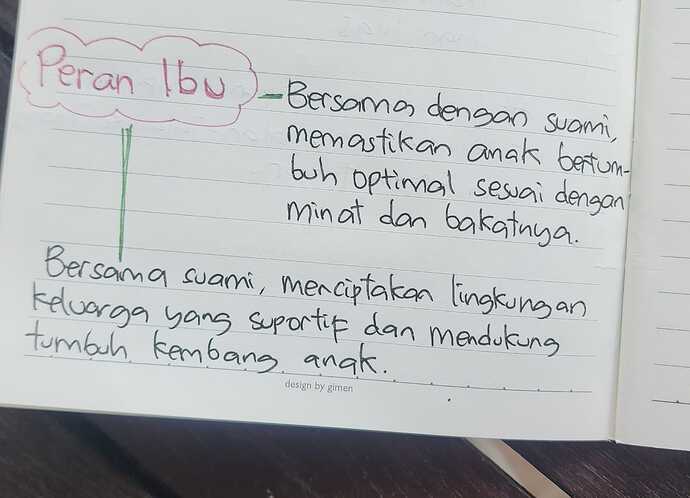 Peran Ibu
Bersama dengan suami,
memastikan anak bertum-
buh optimal sesuai dengan
minat dan bakatnya.
Bersama suami, menciptakan lingkungan
keluarga yang suportif dan mendukung
tumbuh kembang anak.
design by gimen